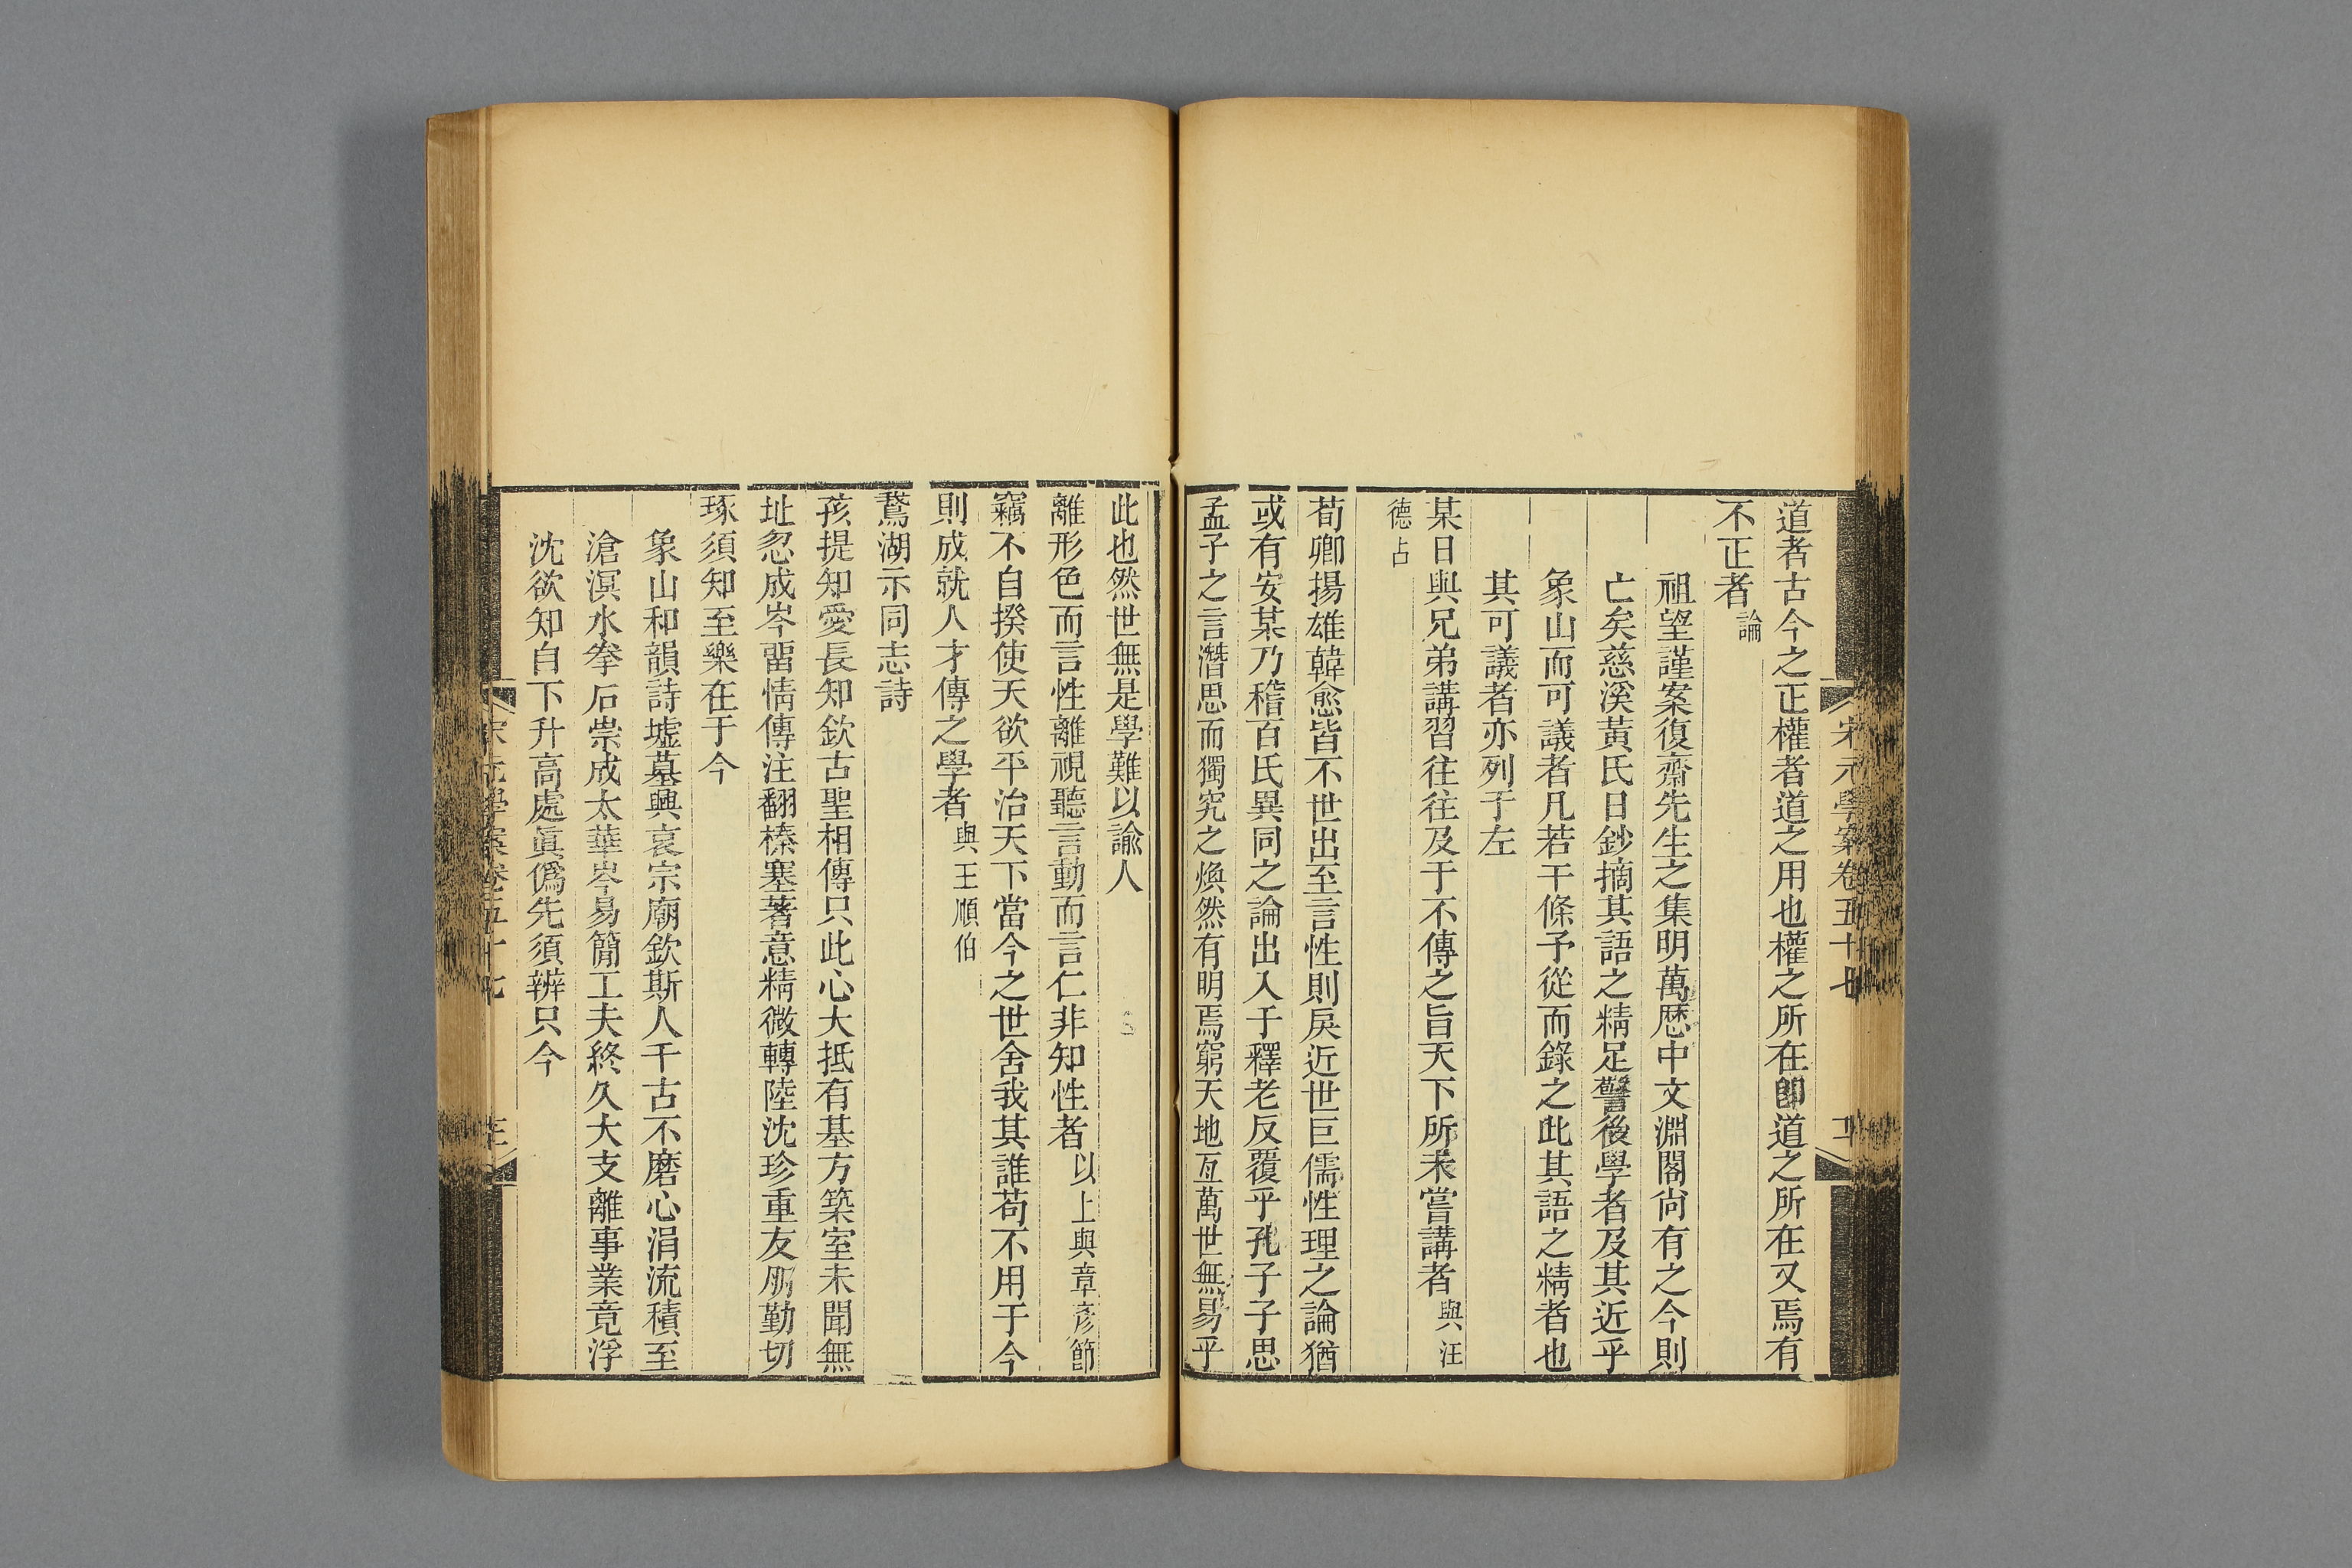 道者古今之正權者道之用也權之所在卽道之所在又焉有
不正者論
祖望謹案復齋先生之集明萬歷中文淵閣尙有之今則
亡矣慈溪黃氏日鈔摘其語之精足警後學者及其近乎
象山而可議者凡若干條予從而錄之此其語之精者也
其可議者亦列于左
某日與兄弟講習往往及于不傳之旨天下所未嘗講者與汪
德占
荀卿揚雄韓愈皆不世出至言性則戾近世巨儒性理之論猶
或有安某乃稽百氏異同之論出入于釋老反覆乎孔子子思
孟子之言潛思而獨究之煥然有明焉窮天地亙萬世無易乎
宋元學案卷五十七
此也然世無是學難以諭人
離形色而言性離視聽言動而言仁非知性者以上與章彥節
竊不自揆使天欲平治天下當今之世舍我其誰苟不用于今
則成就人才傳之學者與王順伯
鵞湖示同志詩
孩提知愛長知欽古聖相傳只此心大抵有基方築室未聞無
址忽成岑畱情傳注翻榛塞著意精微轉陸沈珍重友朋勤切
琢須知至樂在于今
象山和韻詩墟墓興哀宗廟欽斯人千古不磨心涓流積至
滄溟水拳石崇成太華岑易簡工夫終久大支離事業竟浮
沈欲知自下升高處眞僞先須辨只今
宋元學案卷五十七